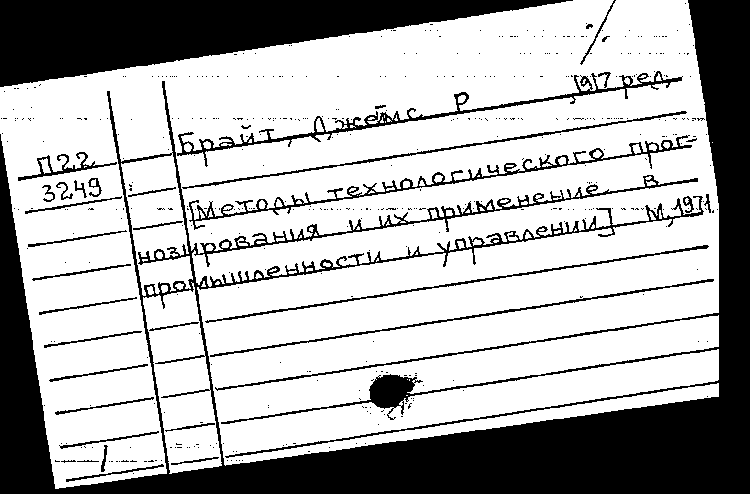 Брайт, Джеймс Р ,1917 ред,
П22
3249
[Методы технологического прог-
нозирования и их применение в
промышленности и управлении] М,1971